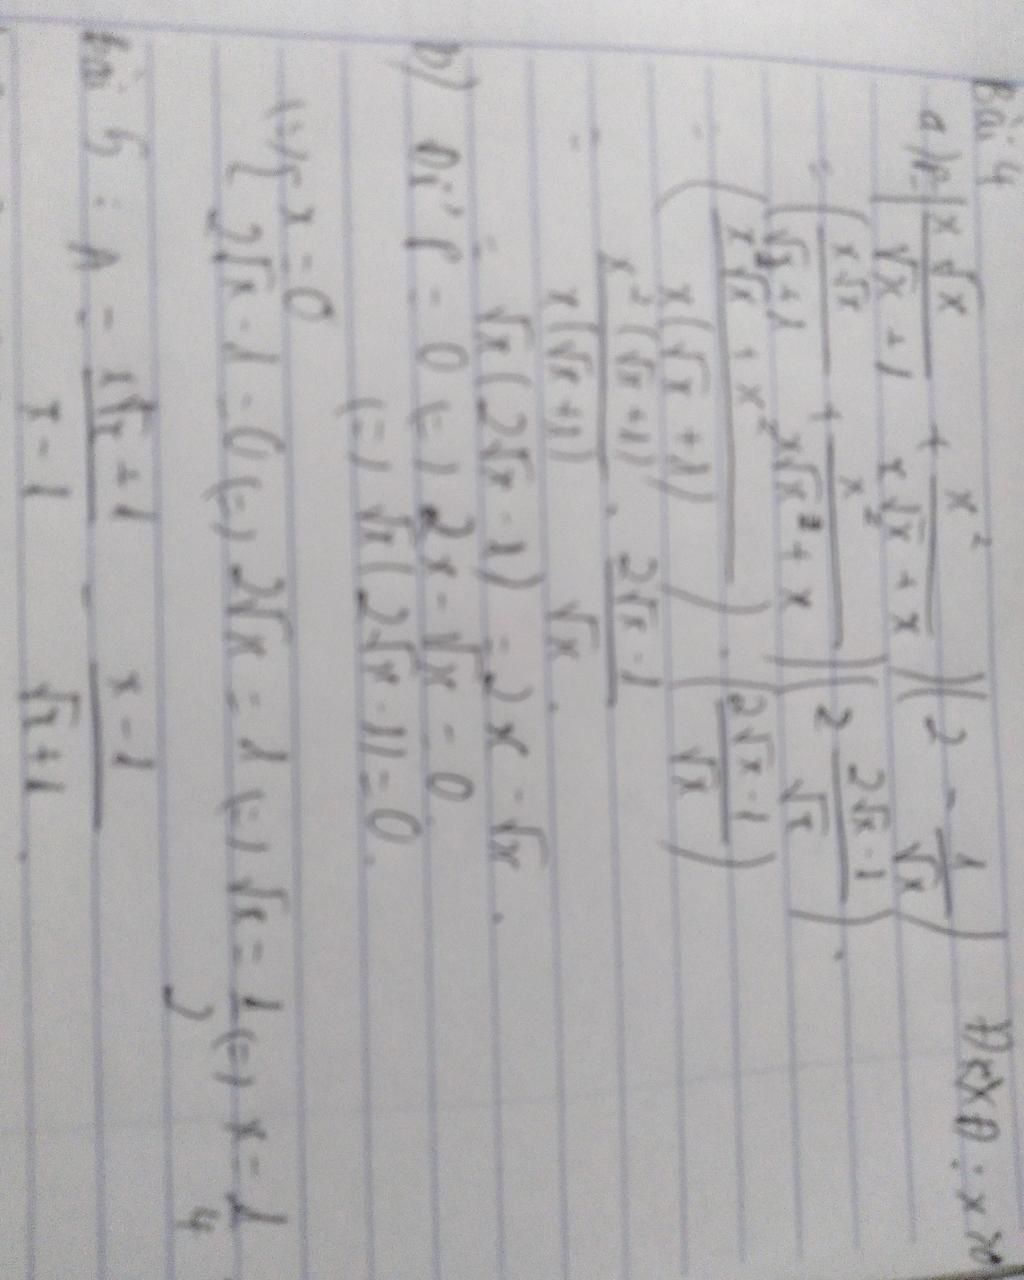 Bài 4
a) P = ( x√x / √x + 1 + x² / x√x + x )( 2 - 1 / √x ) ĐKXĐ: x > 0
= ( x√x / √x + 1 + x² / x√x + x )( 2 2√x - 1 / √x ).
= ( x²√x + x² / x(√x + 1) ) . ( 2√x - 1 / √x )
= x²(√x + 1) / x(√x + 1) . 2√x - 1 / √x .
= √x(2√x - 1) = 2x - √x .
b) P = 0 (=) 2x - √x = 0
(=) √x(2√x - 1) = 0.
(=) { x = 0
2√x - 1 = 0 (=) 2√x = 1 (=) √x = 1/2 (=) x = 1/4
Bài 5 : A = √x + 1 / x - 1 . x - 1 / √x + 1 .